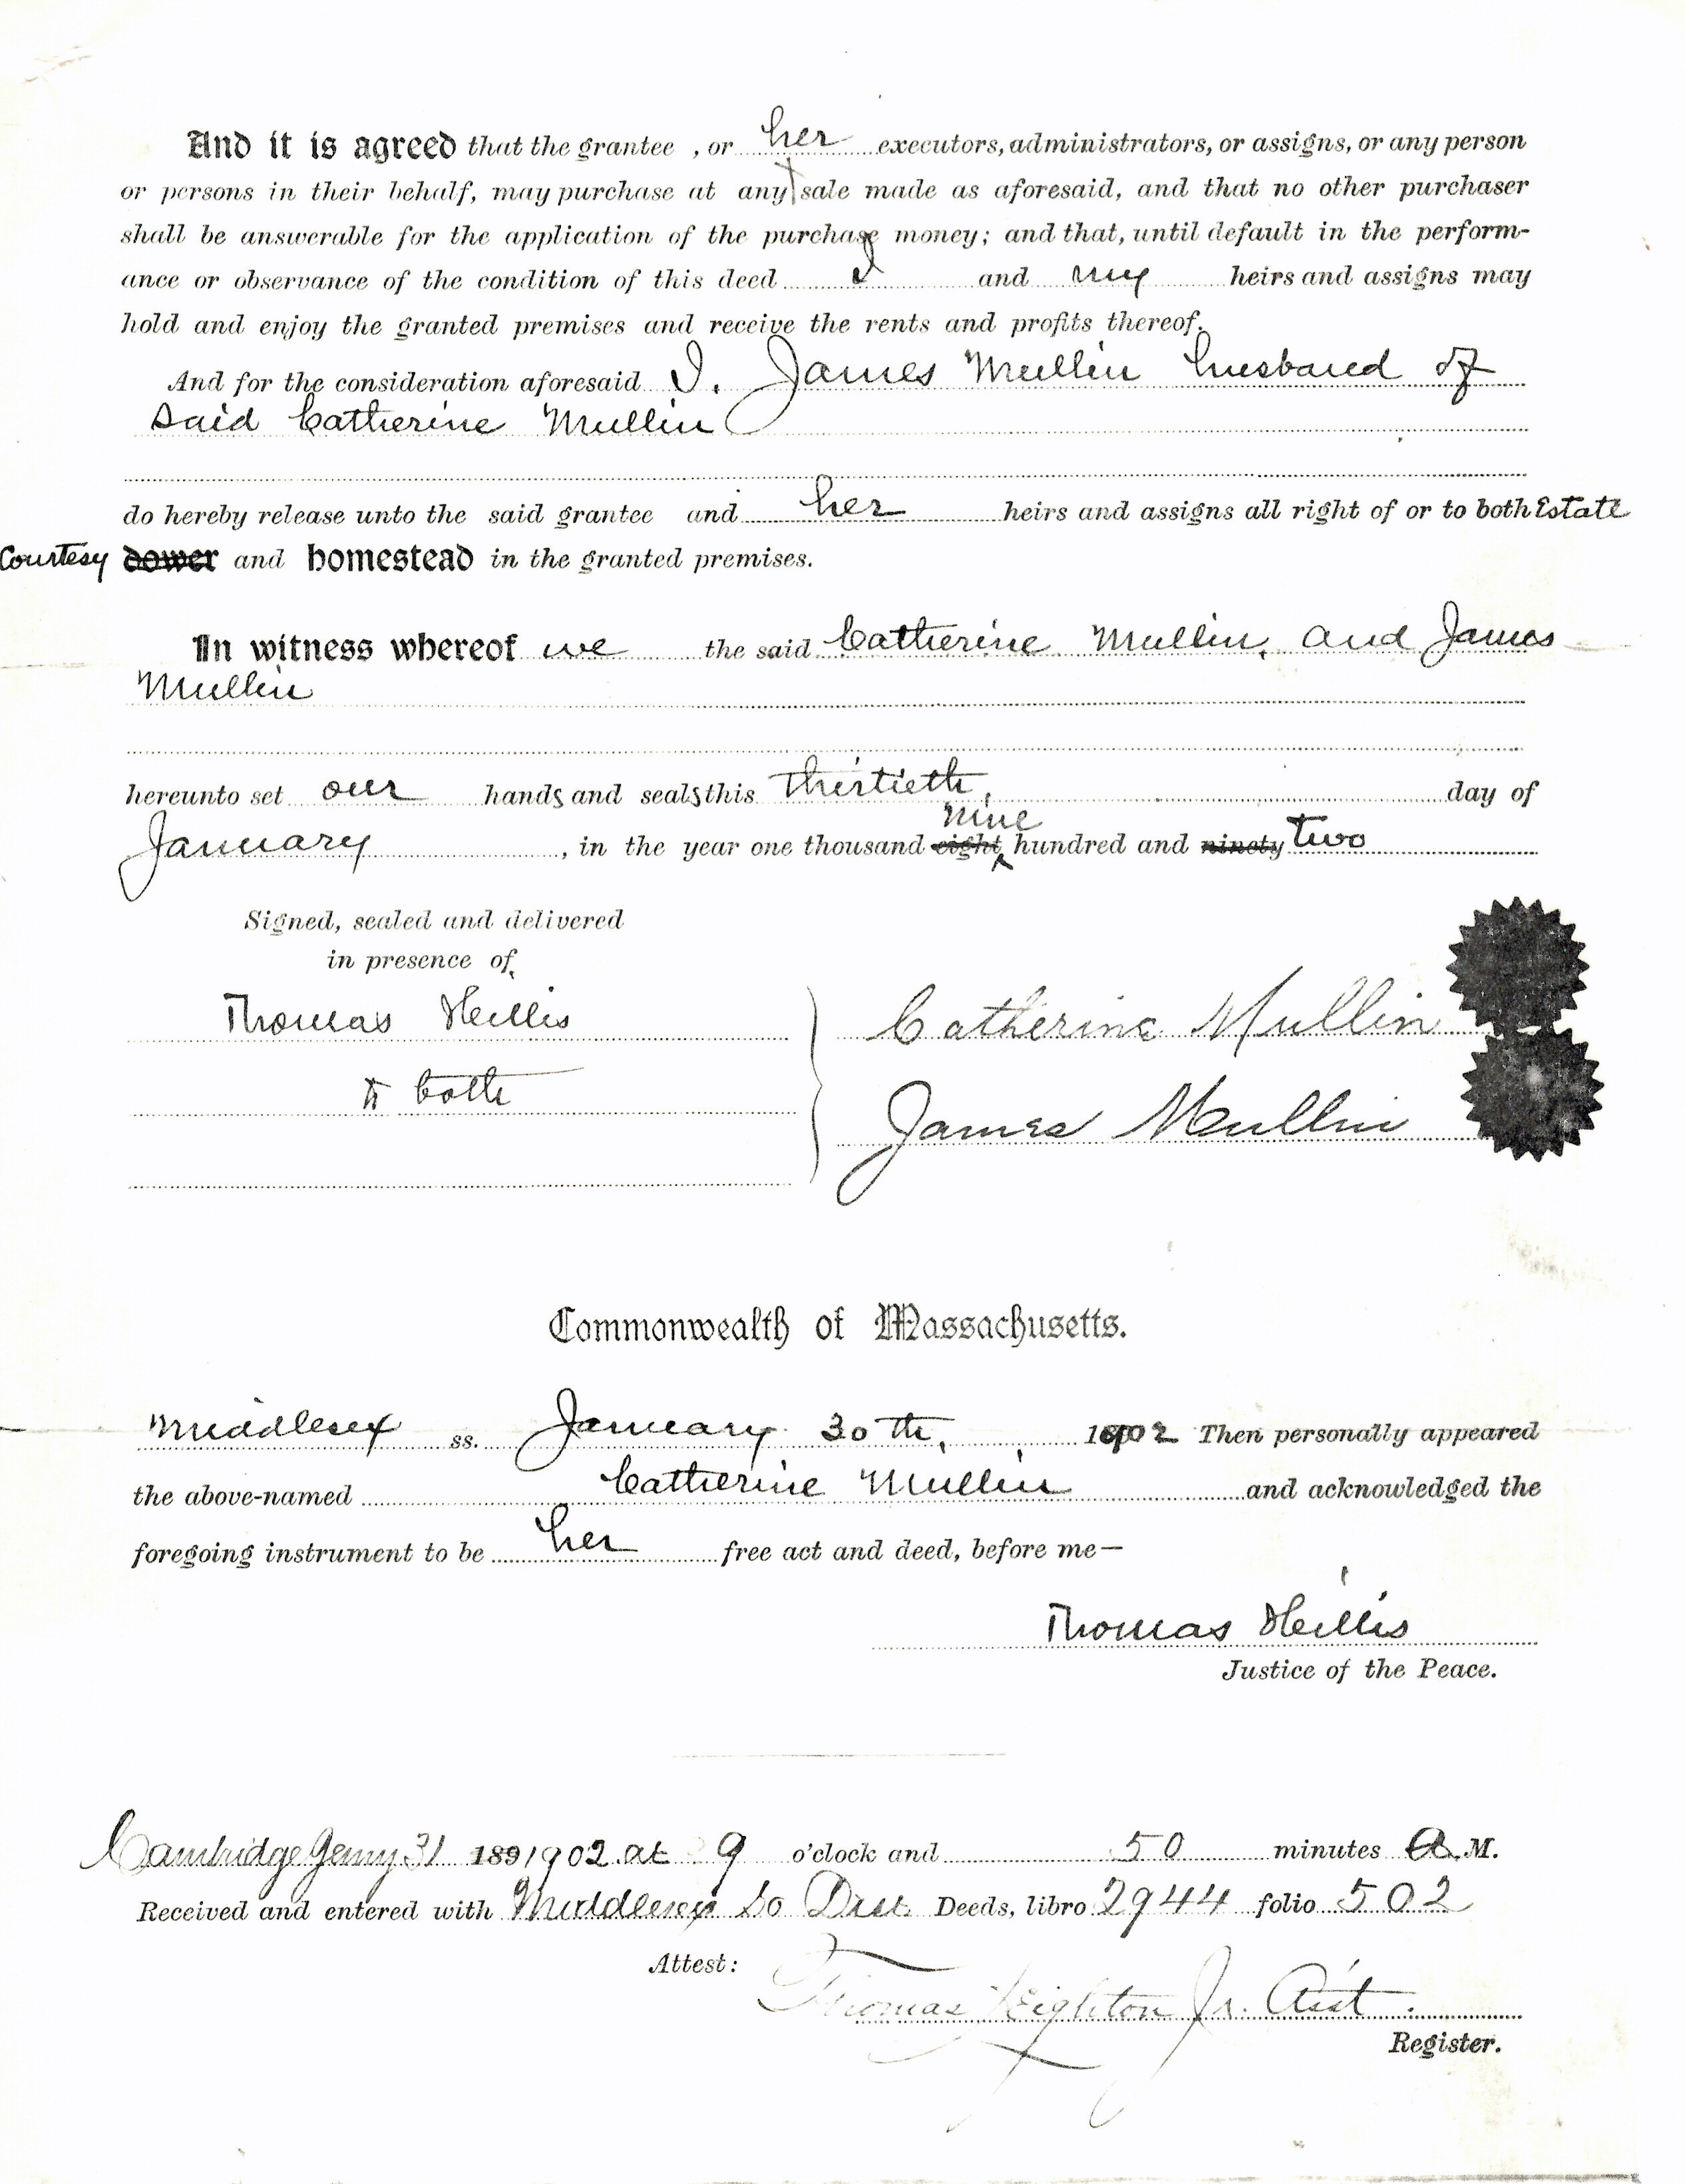 And it is agreed that the grantee , or her executors, administrators, or assigns, or any person
or persons in their behalf, may purchase at any sale made as aforesaid, and that no other purchaser
shall be answerable for the application of the purchase money; and that, until default in the perform-
ance or observance of the condition of this deed I and my heirs and assigns may
hold and enjoy the granted premises and receive the rents and profits thereof.
And for the consideration aforesaid I, James Mullin husband of
said Catherine Mullin
do hereby release unto the said grantee and her heirs and assigns all right of or to both Estate
Courtesy dower and homestead in the granted premises.
In witness whereof we the said Catherine Mullin, and James
Mullin
hereunto set our hands and seals this thirtieth, day of
nine
January , in the year one thousand eight hundred and ninety two
Signed, sealed and delivered
in presence of
Thomas Hillis
to both
Catherine Mullin
James Mullin
Commonwealth of Massachusetts.
Middlesex ss. January 30th, 1902 Then personally appeared
the above-named Catherine Mullin and acknowledged the
foregoing instrument to be her free act and deed, before me—
Thomas Hillis
Justice of the Peace.
Cambridge 31 189 1902 at 9 o'clock and 50 minutes A.M.
Received and entered with Middlesex So Dist. Deeds, libro 2944 folio 502
Attest:
Thomas Leighton Jr. Asst.
Register.